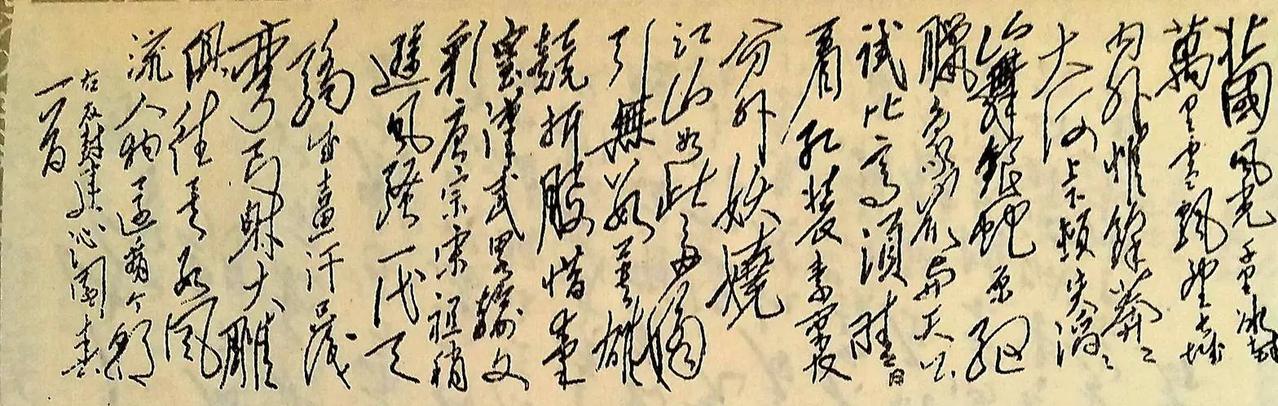 北國風光千里冰封
萬里雪飄望長城
内外惟餘莽々
大河上下頓失滔々
山舞銀蛇原驅
臘象欲與天公
試比高須晴日
看紅裝素裹
分外妖嬈
江山如此多嬌
引無數英雄
競折腰惜秦
皇漢武畧輸文
彩唐宗宋祖稍
遜風騷一代天
驕成吉思汗只識
彎弓射大雕
俱往矣數風
流人物還看今朝
右反封建沁園春
一首